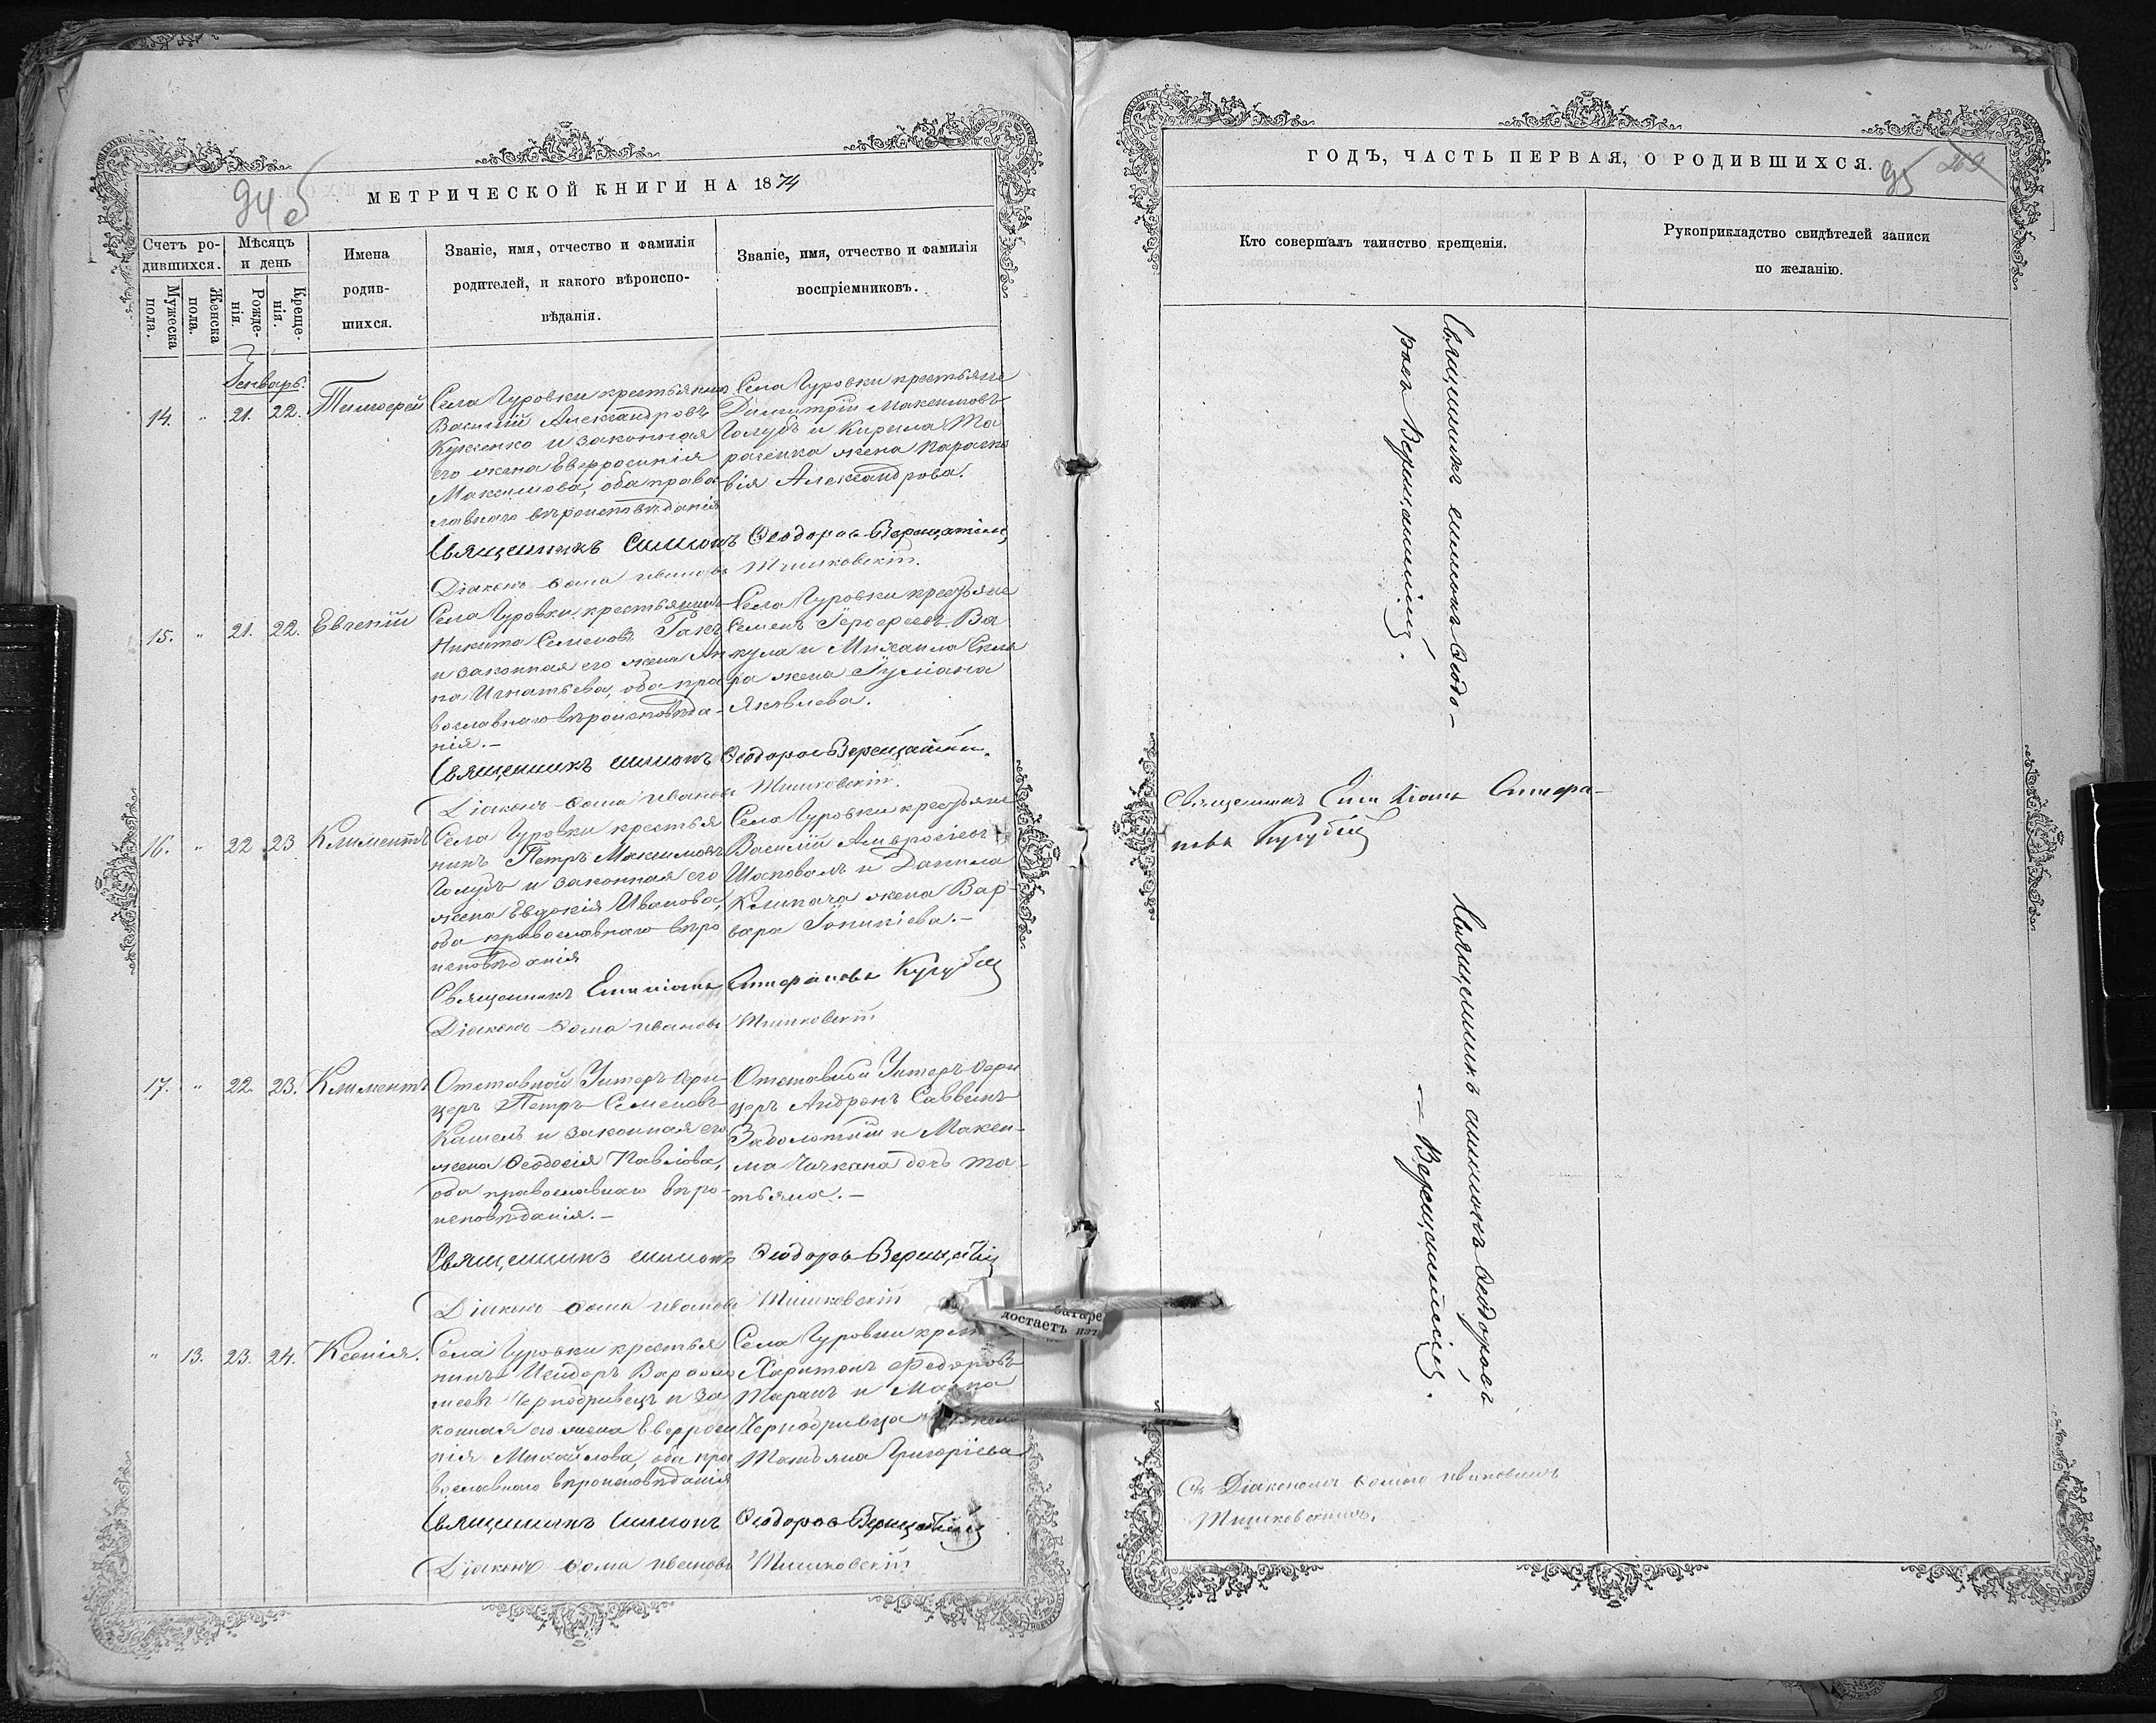 94 об
МЕТРИЧЕСКОЙ КНИГИ НА 1874
Счетъ ро-
дившихся.
Мѣсяцъ
и день
Мужеска
пола.
Женска
пола.
Рожде-
нія.
Креще-
нія.
Имена
родив-
шихся.
Званіе, имя, отчество и фамилія
родителей, и какого вѣроиспо-
вѣданія.
Званіе, имя, отчество и фамилія
воспріемниковъ.
Генварь.
14. " 21. 22. Тимофей
Села Гуровки крестьянин
Василій Александровъ
и законная
его жена Евфросинія
Максимова, оба право-
славнаго вѣроисповѣданія
Села Гуровки крестьяне
Димитрій Максимовъ
Голубъ и Кирила Та
раненка жена Параске
вія Александрова.
Священникъ Симионъ Ѳеодоровъ
Діаконъ Ѳома Ивановъ Тишковскій.
15. " 21. 22. Евгеній
Села Гуровки крестьянинъ
Никита Семеновъ Гакъ
и законная его жена Ан
на Игнатьева, оба пра
вославнаго вѣроисповѣда-
нія.-
Села Гуровки крестьяне
Семенъ Ва
кула и Михаила
ра жена Іуліана
Яковлева.
Священникъ Симионъ Ѳеодоровъ
Діаконъ Ѳома Ивановъ Тишковскій.
16. " 22 23 Климентъ
Села Гуровки крестья
нинъ Петръ Максимовъ
Голубъ и законная его
жена Евдокія Иванова,
оба православнаго вѣро
исповѣданія
Села Гуровки крестьяне
Василій Амвросіевъ
Шаповалъ и Данила
жена Вар-
вара Іоникіева.-
Священникъ Стефановъ
Діаконъ Ѳома Ивановъ Тишковскій
17. " 22. 23. Климентъ
Отставной Унтеръ Офи-
церъ Петръ Семеновъ
Кашель и законная его
жена Ѳеодосія Павлова,
оба православнаго вѣро-
исповѣданія.-
Отставной Унтеръ Офи
церъ Андронъ Саввинъ
Заболотній и Макси-
ма Чичкана дочь Та-
тьяна.-
Священникъ Симионъ Ѳеодоровъ
Діаконъ Ѳома Ивановъ Тишковскій
" 13. 23. 24. Ксенія.
Села Гуровки крестья
нинъ Исидоръ Варѳоло
меевъ Чернобривецъ и за
конная его жена Евфроси
нія Михайлова, оба пра
вославнаго вѣроисповѣданія
Села Гуровки
Харитонъ Федоровъ
Таранъ и
Чернобривца
Татьяна Григоріева
Священникъ Симионъ Ѳеодоровъ
Діаконъ Ѳома Ивановъ Тишковскій
достаетъ
ГОДЪ, ЧАСТЬ ПЕРВАЯ, О РОДИВШИХСЯ.
95
Кто совершалъ таинство крещенія.
Рукоприкладство свидѣтелей записи
по желанію.
Священникъ Симионъ Ѳеодо-
ровъ
Священникъ Стефа-
новъ
Священникъ Симионъ Ѳеодоровъ
Съ Діакономъ Ѳомою Ивановымъ
Тишковскимъ.